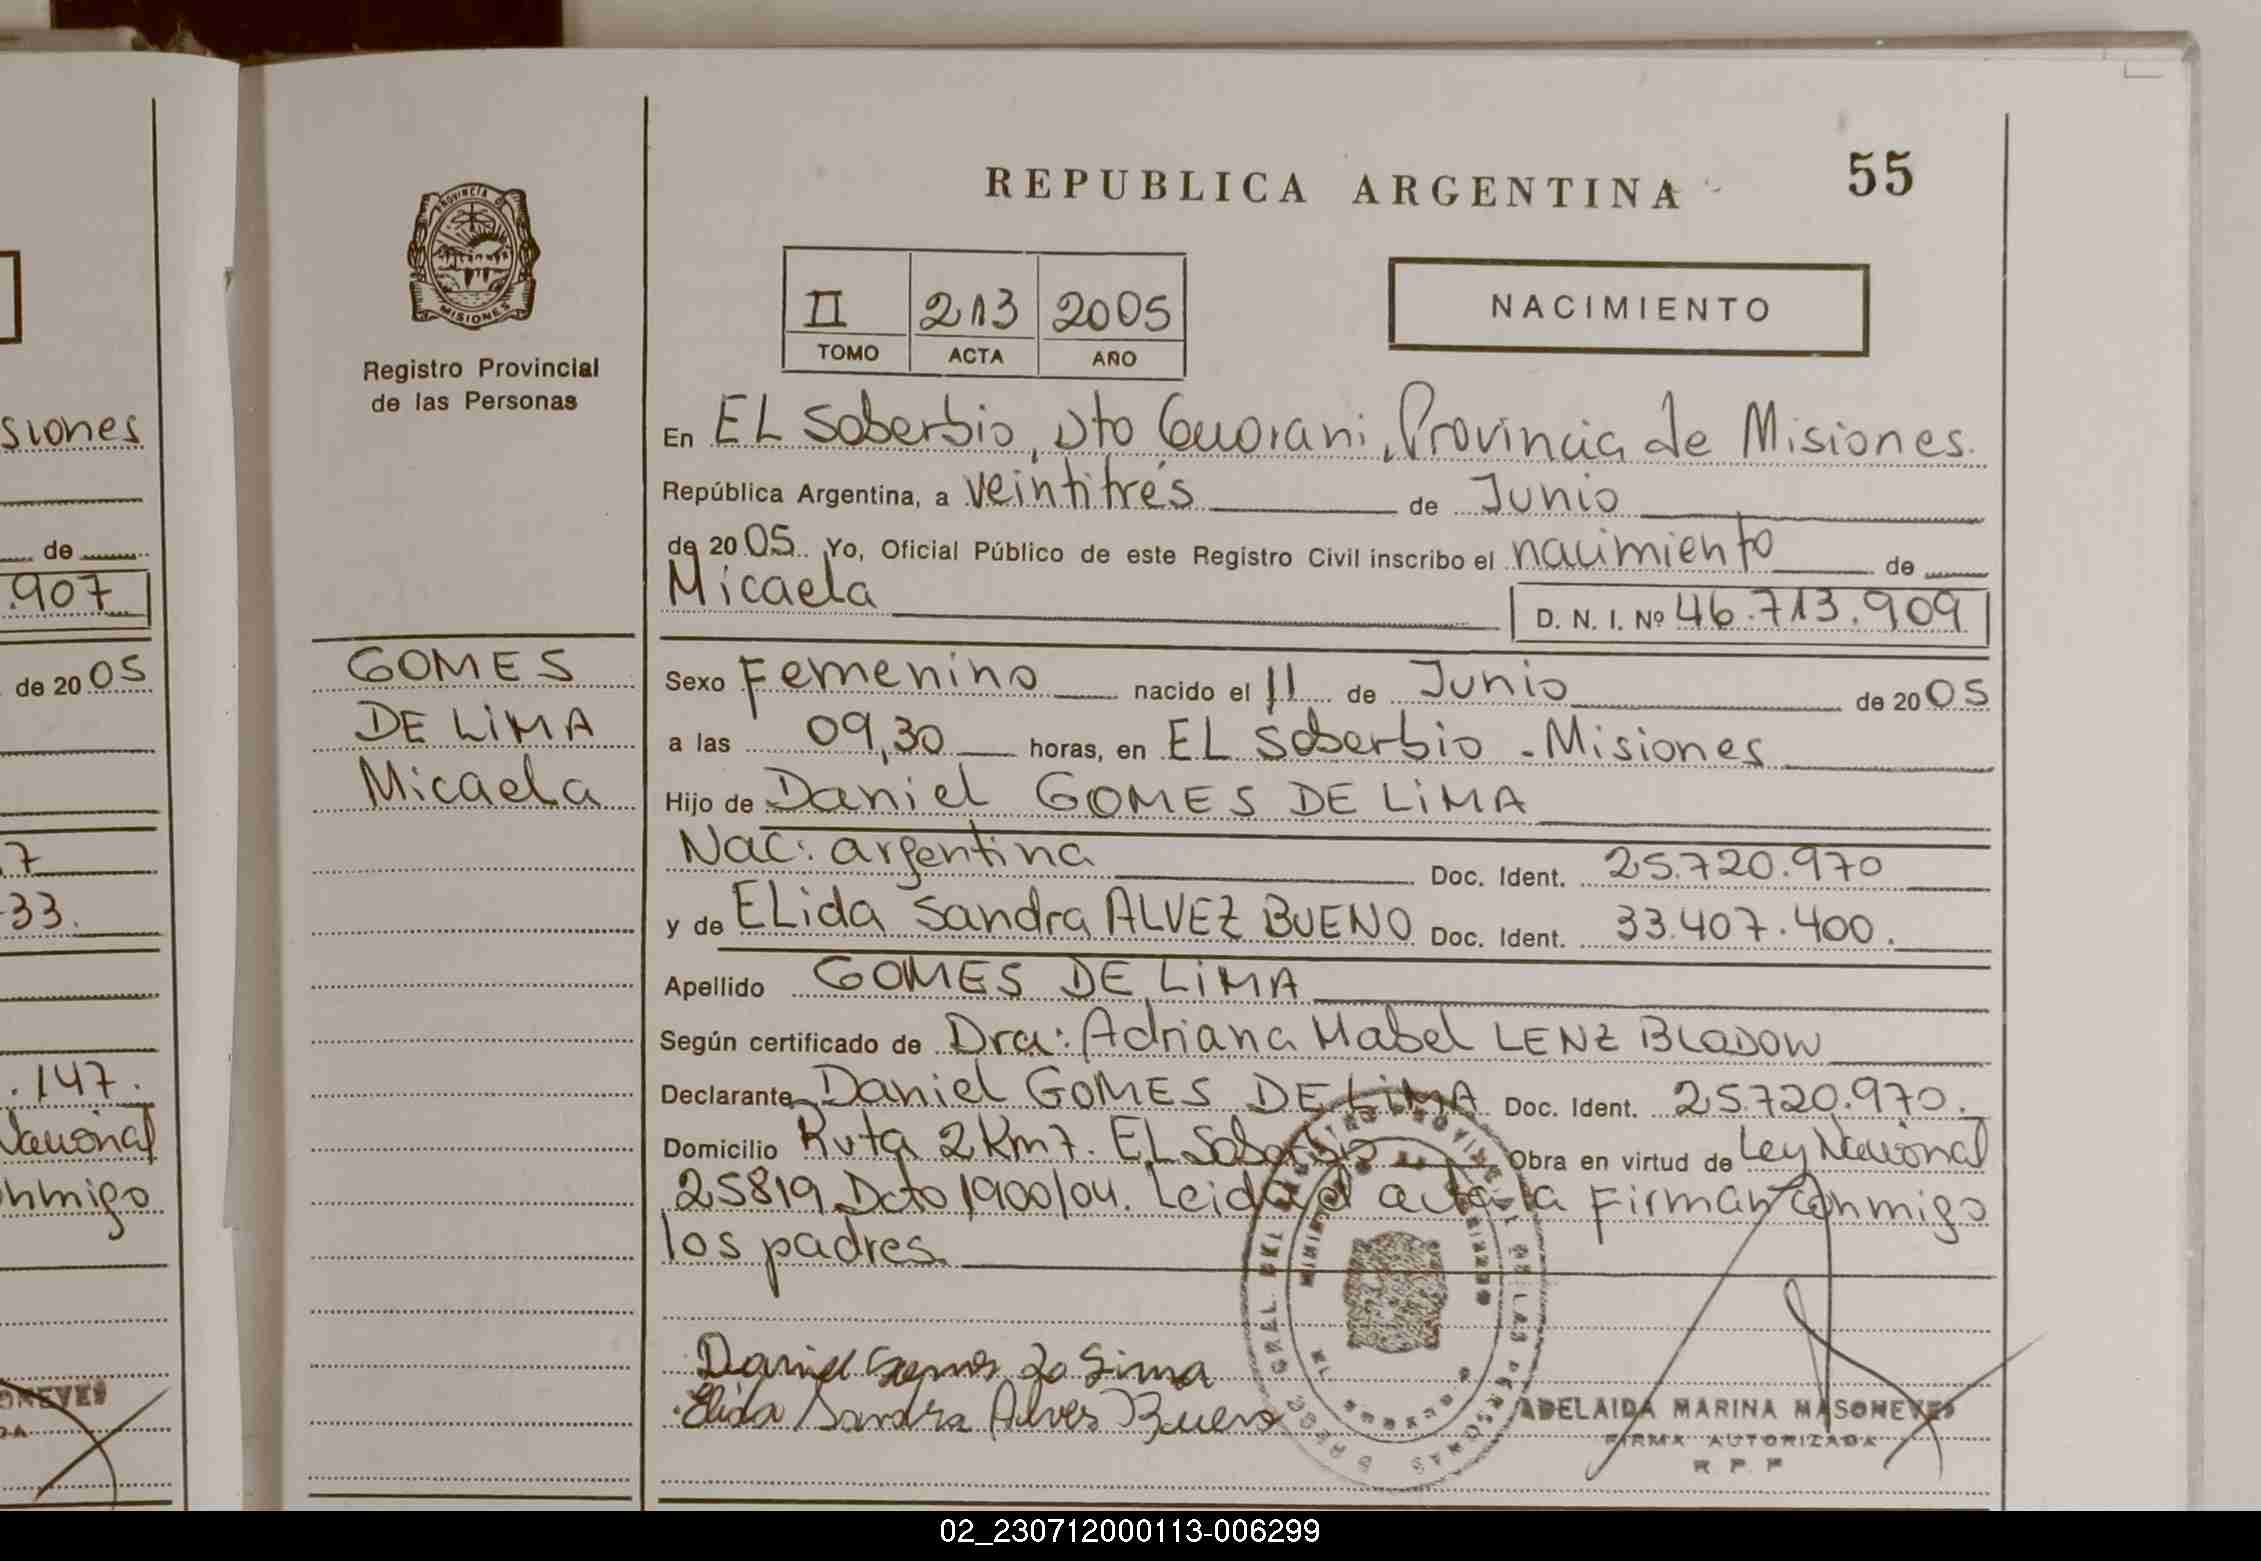 siones
de
.907
de 20 05
7
33.
.147.
Nacional
nmigo
PROVINCIA DE
MISIONES
Registro Provincial
de las Personas
GOMES
DE LiMA
Micaela
REPUBLICA ARGENTINA
55
II 213 2005
TOMO ACTA AÑO
NACIMIENTO
En EL Soberbio, Dto Guarani, Provincia de Misiones.
República Argentina, a veintitrés de Junio
de 20 05 Yo, Oficial Público de este Registro Civil inscribo el nacimiento de
Micaela
D. N. I. Nº 46.713.909
Sexo Femenino nacido el 11 de Junio de 20 05
a las 09,30 horas, en EL Soberbio - Misiones
Hijo de Daniel GOMES DE LiMA
Nac: argentina Doc. Ident. 25.720.970
y de ELida Sandra ALVEZ BUENO Doc. Ident. 33.407.400.
Apellido GOMES DE LiMA
Según certificado de Dra: Adriana Mabel LENZ BLODOW
Declarante Daniel GOMES DE LiMA Doc. Ident. 25.720.970.
Domicilio Ruta 2 Km 7. EL Soberbio Obra en virtud de Ley Nacional
25819 Dcto 1900/04. Leida el acta la Firman conmigo
los padres.
Elida Sandra Alves Bueno
ADELAIDA MARINA MASONEVES
FIRMA AUTORIZADA
R P P
02_230712000113-006299